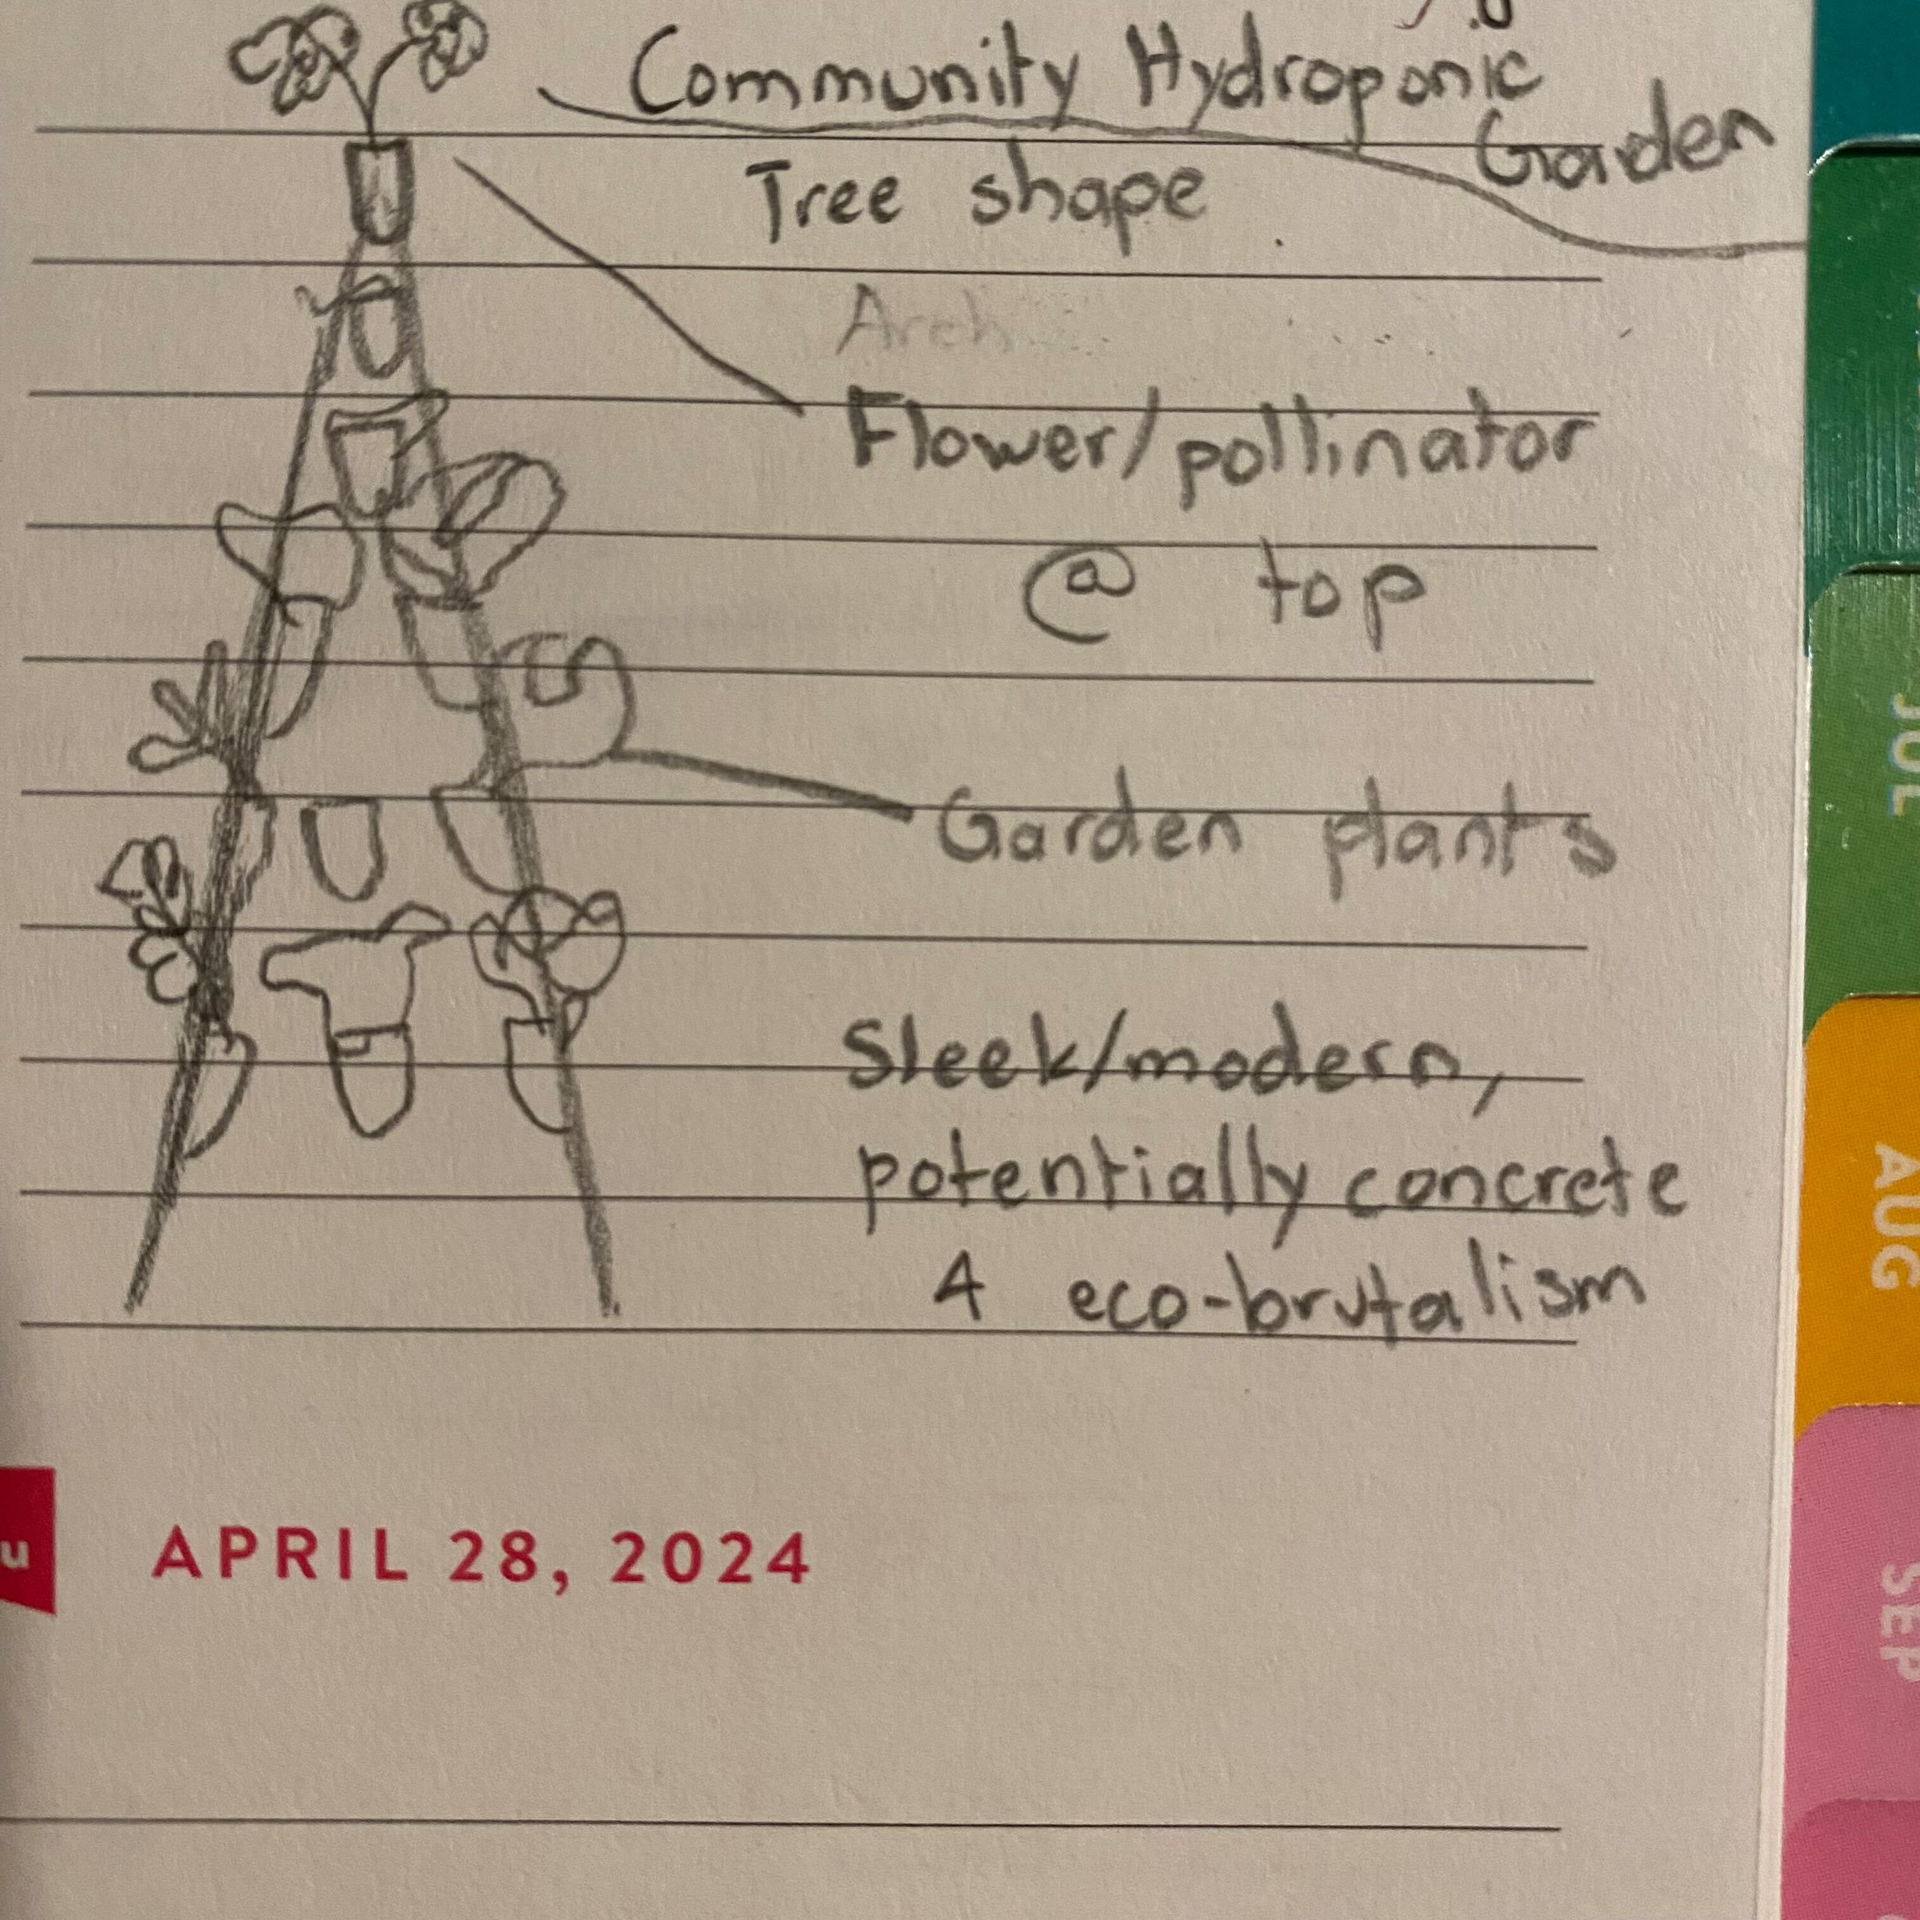 Community Hydroponic
Garden
Tree shape
Arch
Flower/pollinator
@ top
Garden plants
Sleek/modern,
potentially concrete
4 eco-brutalism
APRIL 28, 2024
JUL
AUG
SEP